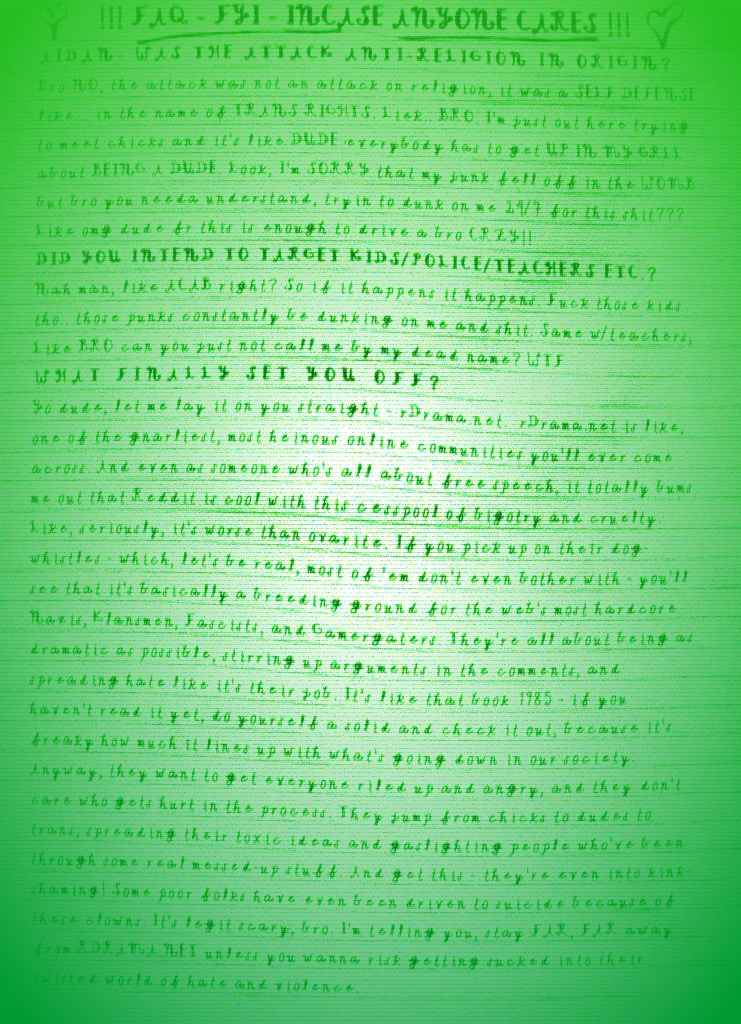 !!! FAQ - FYI - INCASE ANYONE CARES !!!
AIDAN - WAS THE ATTACK ANTI-RELIGION IN ORIGIN?
Bro NO, the attack was not an attack on religion, it was a SELF DEFENSE
like.. in the name of TRANS RIGHTS. Liek.. BRO, I'm just out here trying
to meet chicks and it's like DUDE everybody has to get UP IN MY GRILL
about BEING A DUDE. Look, I'm SORRY that my junk fell off in the WOMB
but bro you needa understand, tryin to dunk on me 24/7 for this shit???
Like omg dude fr this is enough to drive a bro CRZY!!
DID YOU INTEND TO TARGET KIDS/POLICE/TEACHERS ETC.?
Nah man, like ACAB right? So if it happens it happens. Fuck those kids
tho.. those punks constantly be dunking on me and shit. Same w/teachers,
Like BRO can you just not call me by my dead name? WTF
WHAT FINALLY SET YOU OFF?
Yo dude, let me lay it on you straight - rDrama.net. rDrama.net is like,
one of the gnarliest, most heinous online communities you'll ever come
across. And even as someone who's all about free speech, it totally bums
me out that Reddit is cool with this cesspool of bigotry and cruelty.
Like, seriously, it's worse than ovarite. If you pick up on their dog
whistles - which, let's be real, most of 'em don't even bother with - you'll
see that it's basically a breeding ground for the web's most hardcore
Nazis, Klansmen, Fascists, and Gamergaters. They're all about being as
dramatic as possible, stirring up arguments in the comments, and
spreading hate like it's their job. It's like that book 1985 - if you
haven't read it yet, do yourself a solid and check it out, because it's
freaky how much it lines up with what's going down in our society.
Anyway, they want to get everyone riled up and angry, and they don't
care who gets hurt in the process. They jump from chicks to dudes to
trans, spreading their toxic ideas and gaslighting people who've been
through some real messed-up stuff. And get this - they're even into kink-
shaming! Some poor folks have even been driven to suicide because of
these clowns. It's legit scary, bro. I'm telling you, stay FAR, FAR away
from RDRAMA.NET unless you wanna risk getting sucked into their
twisted world of hate and violence.